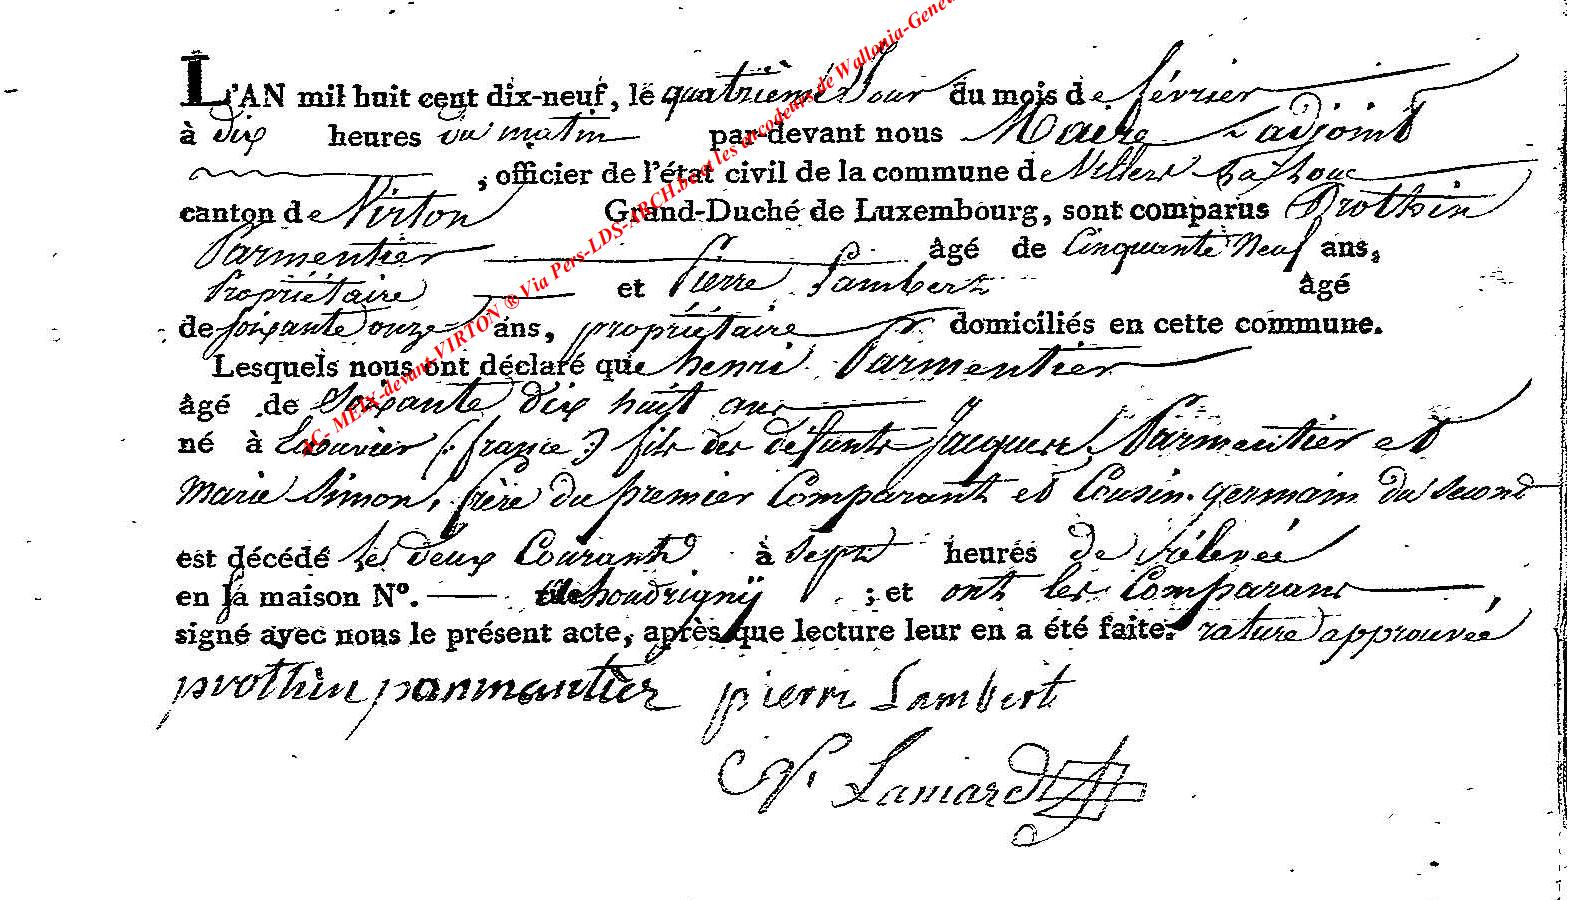 L'AN mil huit cent dix-neuf, le quatrième Jour du mois de février
à dix heures du matin par-devant nous Maire Ladjoint
, officier de l'état civil de la commune de Villers La Loue
canton de Virton Grand-Duché de Luxembourg, sont comparus Prothin
Parmentier âgé de Cinquante Neuf ans,
Propriétaire et Pierre Lambert âgé
de soixante onze ans, propriétaire domiciliés en cette commune.
Lesquels nous ont déclaré que henri Parmentier
âgé de Soixante dix huit ans
né à (: france :) fils des défunts Jacques Parmentier et
Marie Simon, frère du premier Comparant et Cousin germain du second
est décédé le deux Courant à Sept heures de rélevée
en sa maison N°. houdrigny ; et ont les Comparans
signé avec nous le présent acte, après que lecture leur en a été faite. rature approuvée
prothin parmantier pierre Lambert
Lamard
AC- MEIX-devant-VIRTON ® Via Pers-LDS-ARCH.be et les encodeurs de Wallonia-Gene